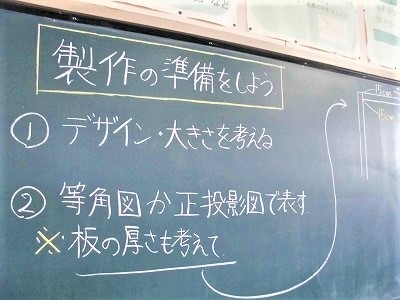 製作の準備をしよう.
① デザイン・大きさを考える
② 等角図か正投影図で表す.
※ 板の厚さも考えて
15cm
15cm